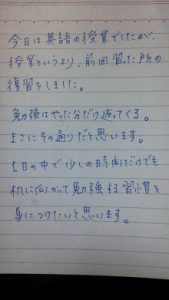 今日は英語の授業でしたが、
授業というより、前回習った所の
復習をしました。
勉強はやった分だけ返ってくる。
まさにその通りだと思います。
1日の中で少しの時間だけでも
机に向かって勉強する習慣を
身につけたいと思います。